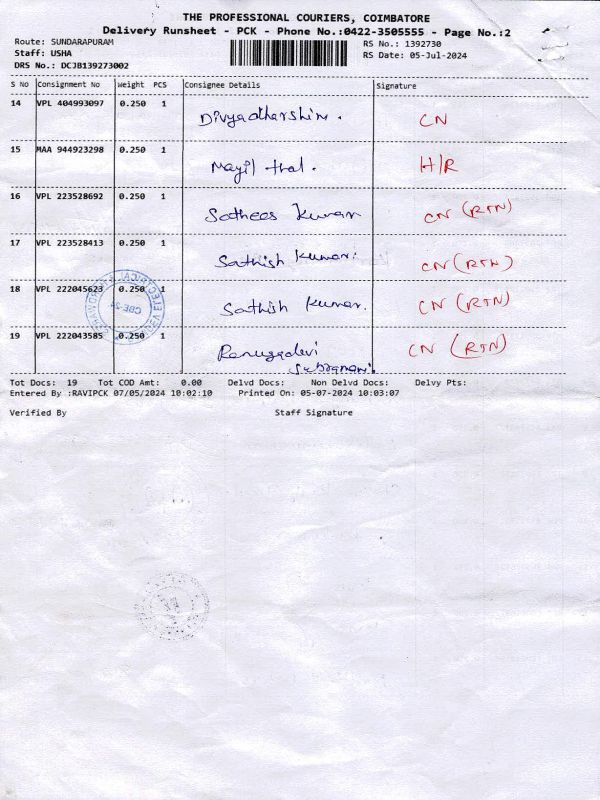 THE PROFESSIONAL COURIERS, COIMBATORE
Delivery Runsheet - PCK - Phone No.:0422-3505555 - Page No.:2
Route: SUNDARAPURAM
Staff: USHA
DRS No.: DCJB139273002
RS No.: 1392730
RS Date: 05-Jul-2024
S No Consignment No Weight PCS Consignee Details Signature
14 VPL 404993097 0.250 1 Divyadharshini. CN
15 MAA 944923298 0.250 1 Mayil thal. H/R
16 VPL 223528692 0.250 1 Sathees Kumar CN (RTN)
17 VPL 223528413 0.250 1 Sathish Kumar. CN (RTN)
18 VPL 222045623 0.250 1 Sathish Kumar. CN (RTN)
19 VPL 222043585 0.250 1 Renugadevi CN (RTN)
Subramani.
Tot Docs: 19 Tot COD Amt: 0.00 Delvd Docs: Non Delvd Docs: Delvy Pts:
Entered By :RAVIPCK 07/05/2024 10:02:10 Printed On: 05-07-2024 10:03:07
Verified By Staff Signature